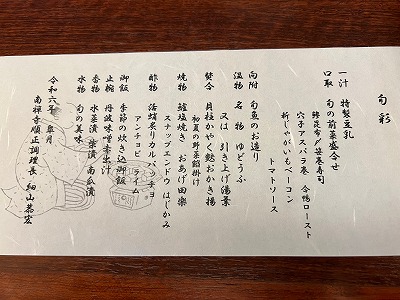 旬彩
一汁 特製豆乳
口取 旬の前菜盛合せ
鱧昆布〆笹巻寿司
穴子アスパラ巻 合鴨ロースト
新じゃがいもベーコン
トマトソース
向附 旬魚のお造り
温物 名物 ゆどうふ
又は 引き上げ湯葉
焚合 貝柱かやく麩おかき揚
初夏の野菜餡掛け
焼物 鱸塩焼き おあげ田楽
スナップエンドウ はじかみ
酢物 活蛸炙りカルパッチョ
アンチョビ ライム
御飯 季節の炊き込御飯
止椀 丹波味噌赤出汁
香物 水菜漬 柴漬 南瓜漬
水物 旬の美味
令和六年 皐月
南禅寺順正調理長 細山恭宏